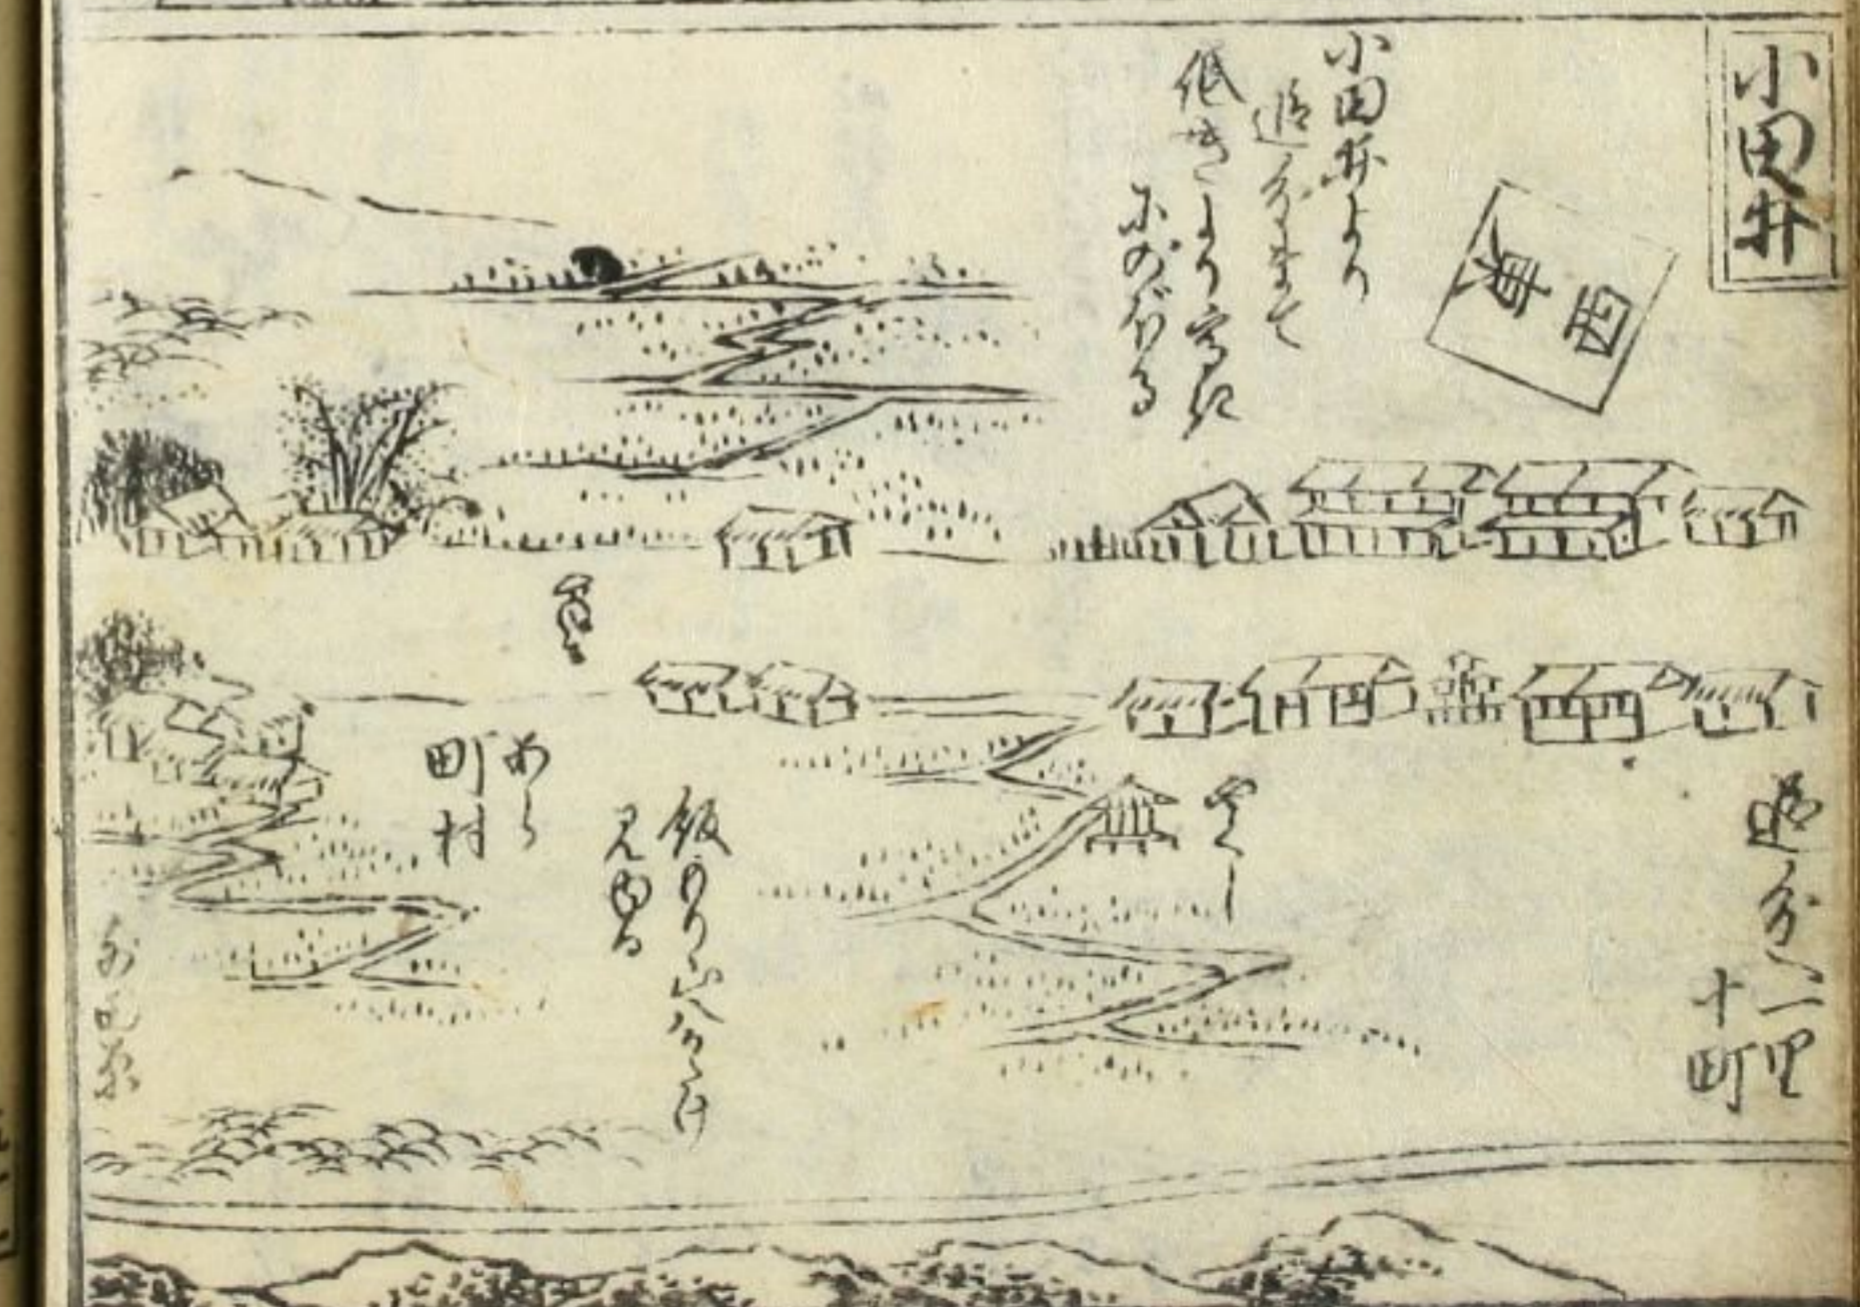 小田井
東
西
小田井より
追分まて
低きより高きに
のぼる
追分へ一里
十町
やくし
飯もり山人かけ
見ゆる
あら
町村
宮